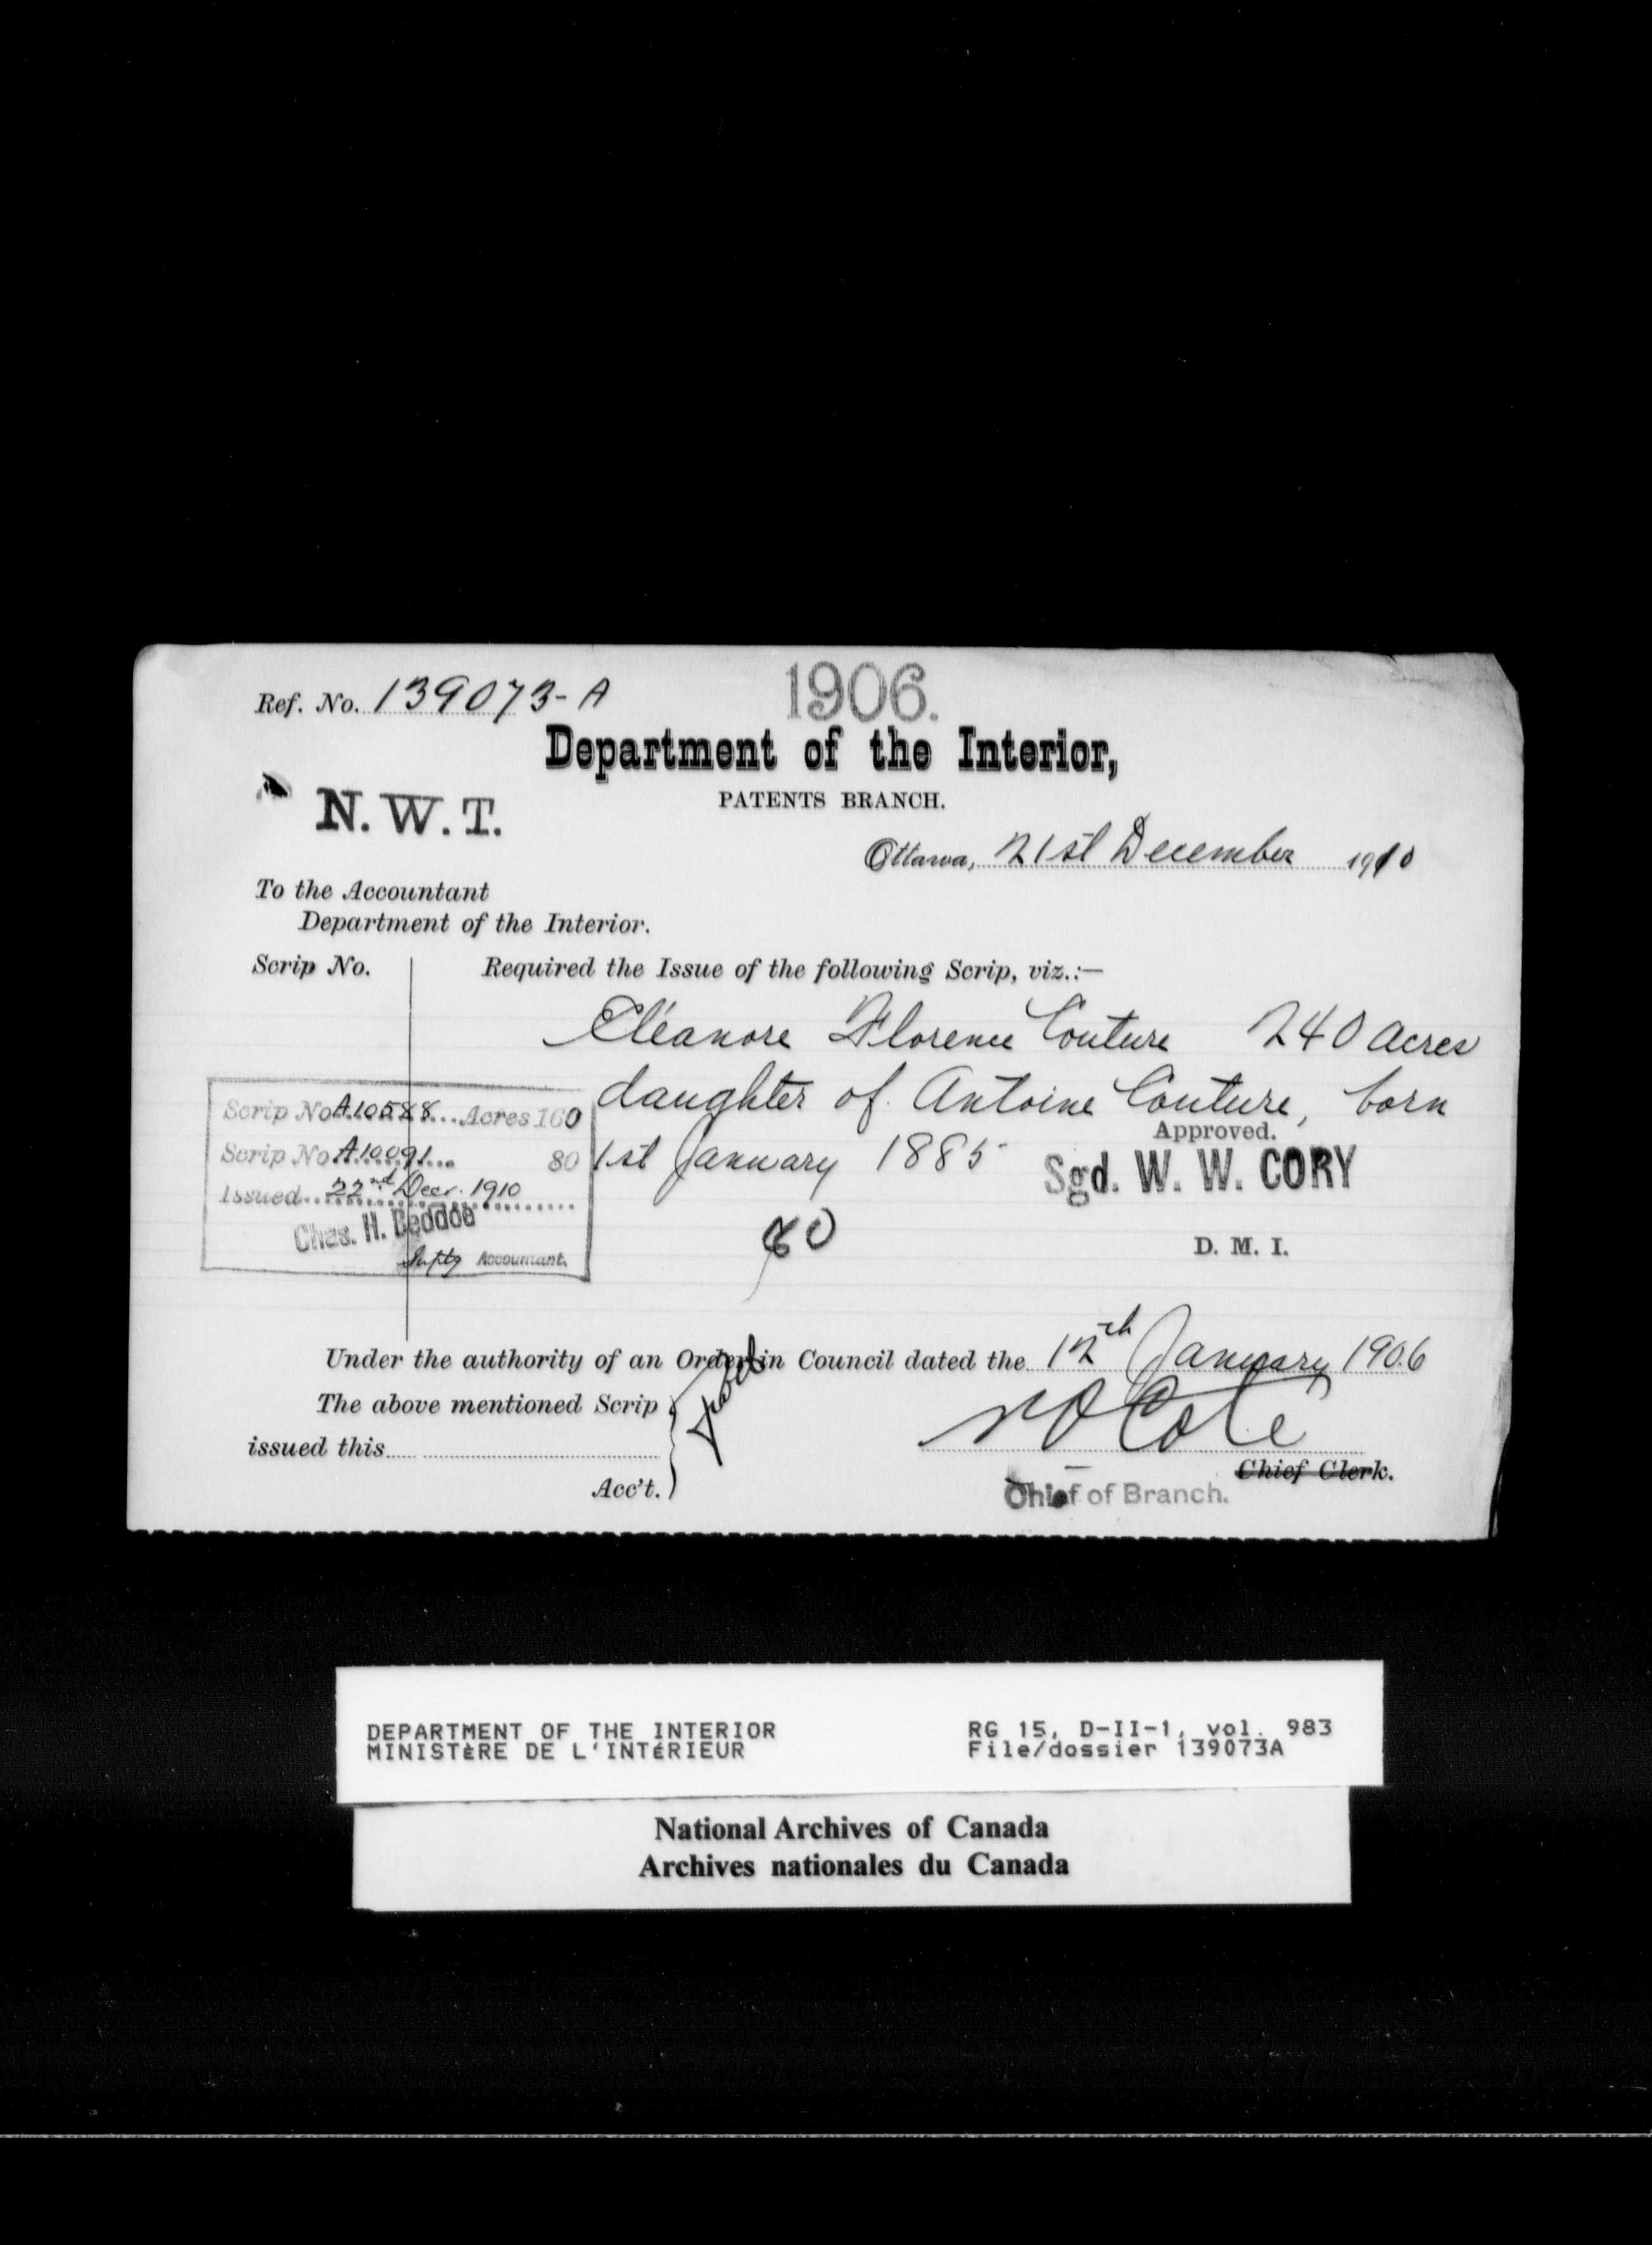 Ref. No. 139073-A
1906.
Department of the Interior,
PATENTS BRANCH.
N. W. T.
Ottawa, 21st December 1910
To the Accountant
Department of the Interior.
Scrip No.
Required the Issue of the following Scrip, viz.:—
Eléanore Florence Couture 240 acres
daughter of Antoine Couture, born
1st January 1885
Scrip No A.10588 Acres 160
Scrip No A.10091 80
Issued 22nd Decr. 1910
Chas. H. Beddoe
Accountant.
Approved.
Sgd. W. W. CORY
D. M. I.
Under the authority of an Order in Council dated the 12th January 1906
The above mentioned Scrip
issued this
Acc't.
N O Cote
Chief Clerk.
Chief of Branch.
DEPARTMENT OF THE INTERIOR
MINISTÈRE DE L'INTÉRIEUR
RG 15, D-II-1, vol. 983
File/dossier 139073A
National Archives of Canada
Archives nationales du Canada